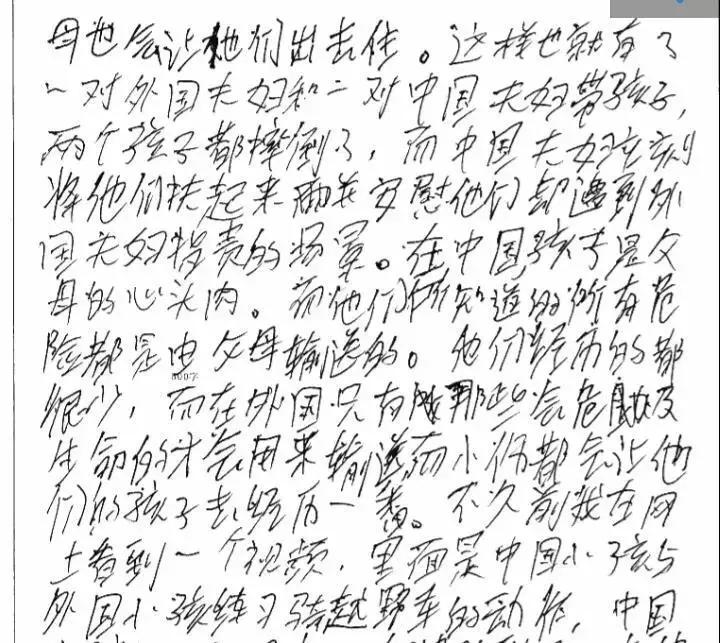 母也会让他们出去住。这样也就有了
一对外国夫妇和一对中国夫妇带孩子,
两个孩子都摔倒了,而中国夫妇立刻
将他们扶起来并安慰他们却遭到外
国夫妇指责的场景。在中国孩子是父
母的心头肉。而他们所知道的所有危
险都是由父母输送的。他们经历的都
800字
很少,而在外国只有那些会危及
生命的才会用来输送而小伤都会让他
们的孩子去经历一番。不久前我在网
上看到一个视频,里面是中国小孩与
外国小孩练习骑越野车的动作,中国